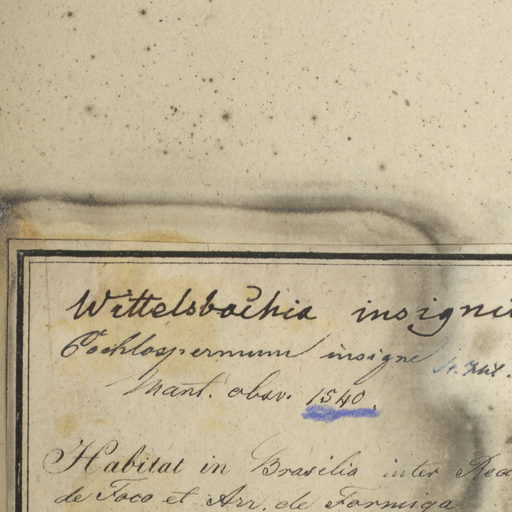 Wittelsbachia insignis
Cochlospermum insigne St. Hil.
Mart. obsv. 1540.
Habitat in Brasilia inter
de Foco et Arr. de Formiga